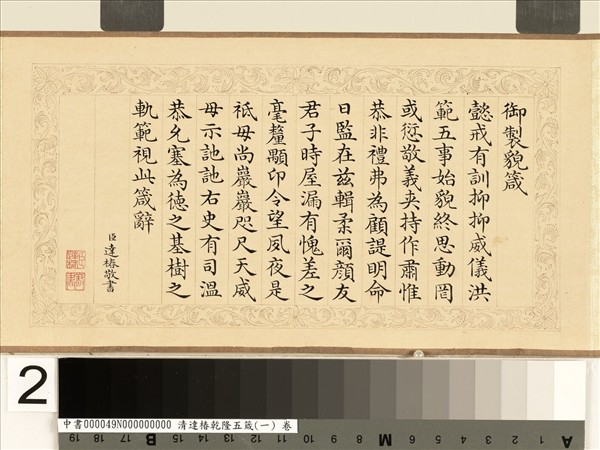 御製貌箴
懿戒有訓抑抑威儀洪
範五事始貌終思動罔
或愆敬義夾持作肅惟
恭非禮弗為顧諟明命
日監在茲輯柔爾顏友
君子時屋漏有愧差之
毫釐顒卬令望夙夜是
祗毋尚巖巖咫尺天威
毋示訑訑右史有司溫
恭允塞為德之基樹之
軌範視此箴辭
臣達椿敬書
2
中書000049N000000000 清達椿乾隆五箴(一) 卷
19 18 17 B 16 15 14 13 12 11 10 9 8 M 7 6 5 4 3 2 A 1